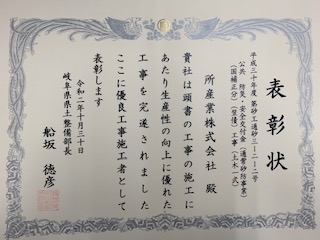 表彰状
平成三十年度 第砂工通砂三-二-二号
公共 防災・安全交付金(通常砂防事業)
(国補正分)(翌債)工事(土木一式)
所産業株式会社 殿
貴社は頭書の工事の施工に
あたり生産性の向上に優れた
工事を完遂されました
ここに優良工事施工者として
表彰します
令和二年十月三十日
岐阜県県土整備部長
船坂 徳彦